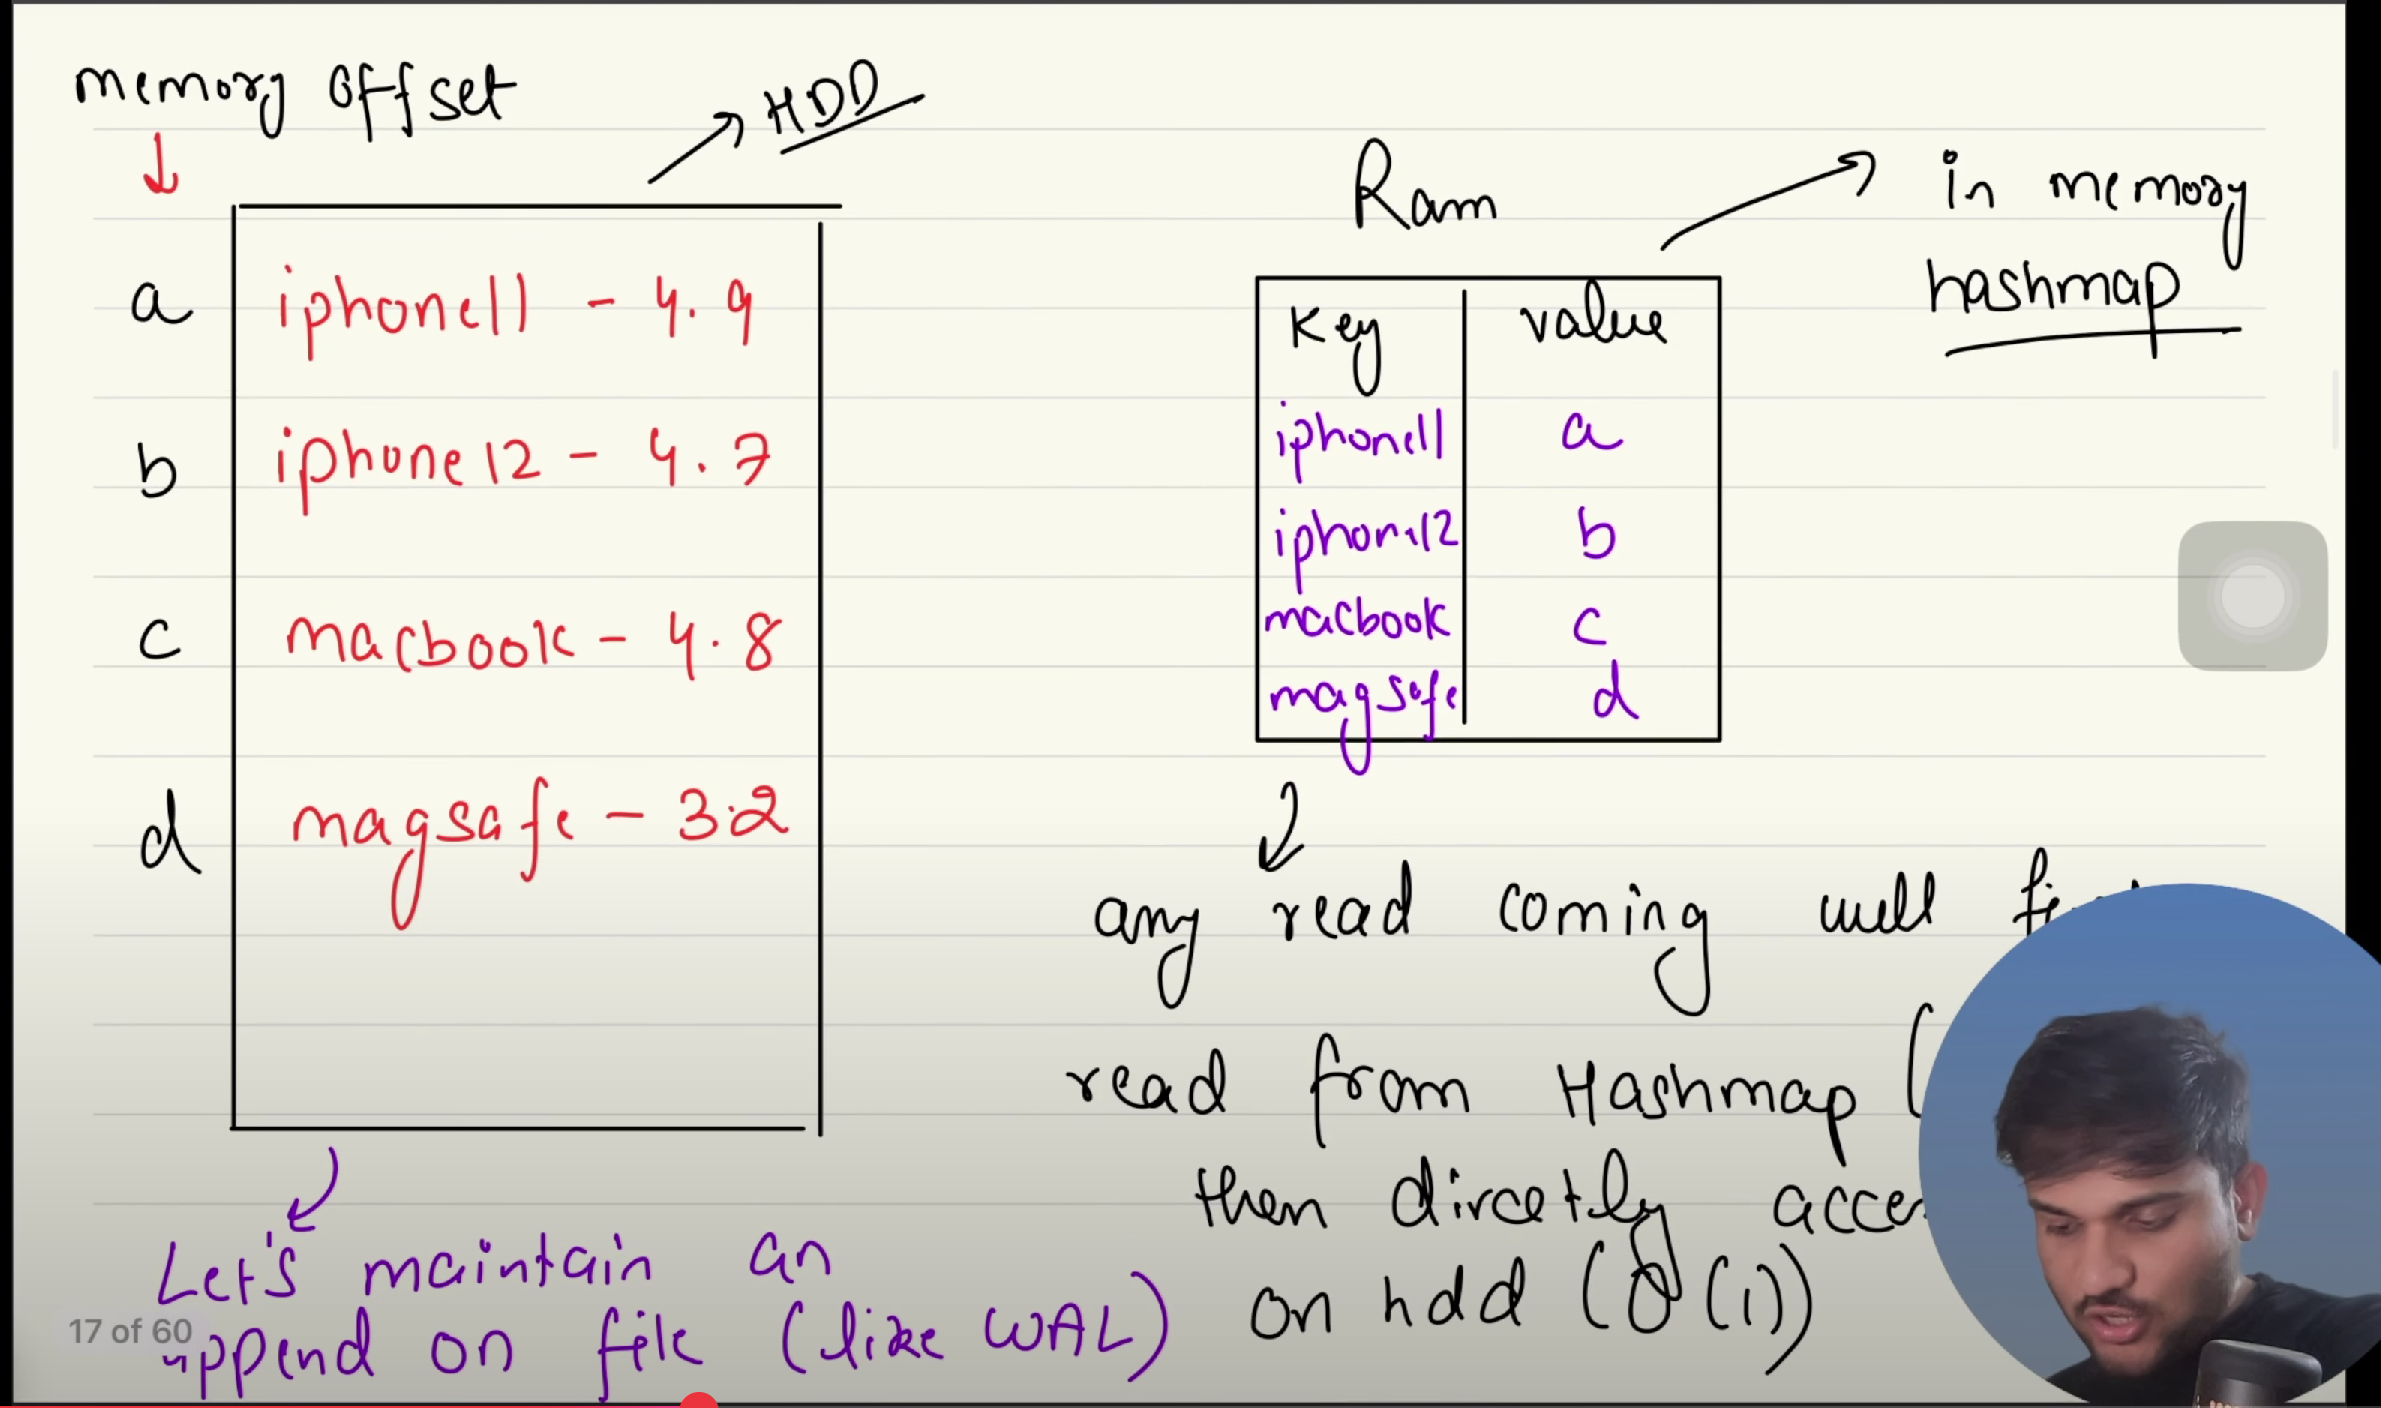 memory offset
HDD
a iphone11 - 4.9
b iphone12 - 4.7
c macbook - 4.8
d magsafe - 3.2
Let's maintain an
append on file (like WAL)
17 of 60
Ram
in memory
hashmap
Key value
iphone11 a
iphone12 b
macbook c
magsafe d
any read coming will
read from Hashmap (
then directly
on hdd (O(1))